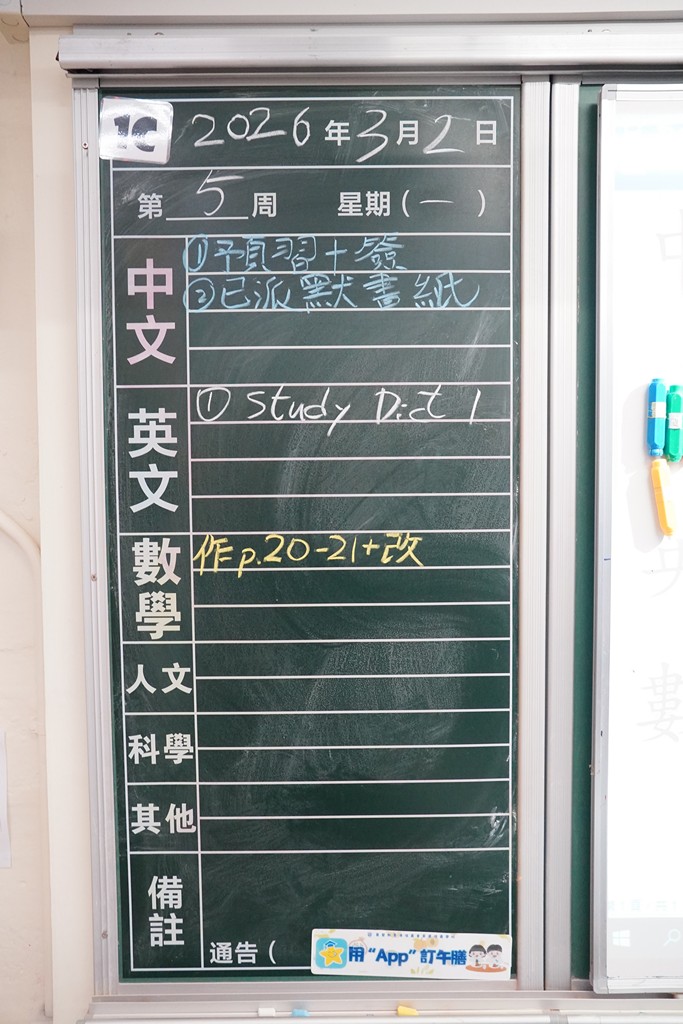 1C 2026年3月2日
第5周 星期(一)
中文
①預習+簽
②已派默書紙
英文
① Study Dict 1
數學
作p.20-21+改
人文
科學
其他
備註
通告(
用“App”訂午膳